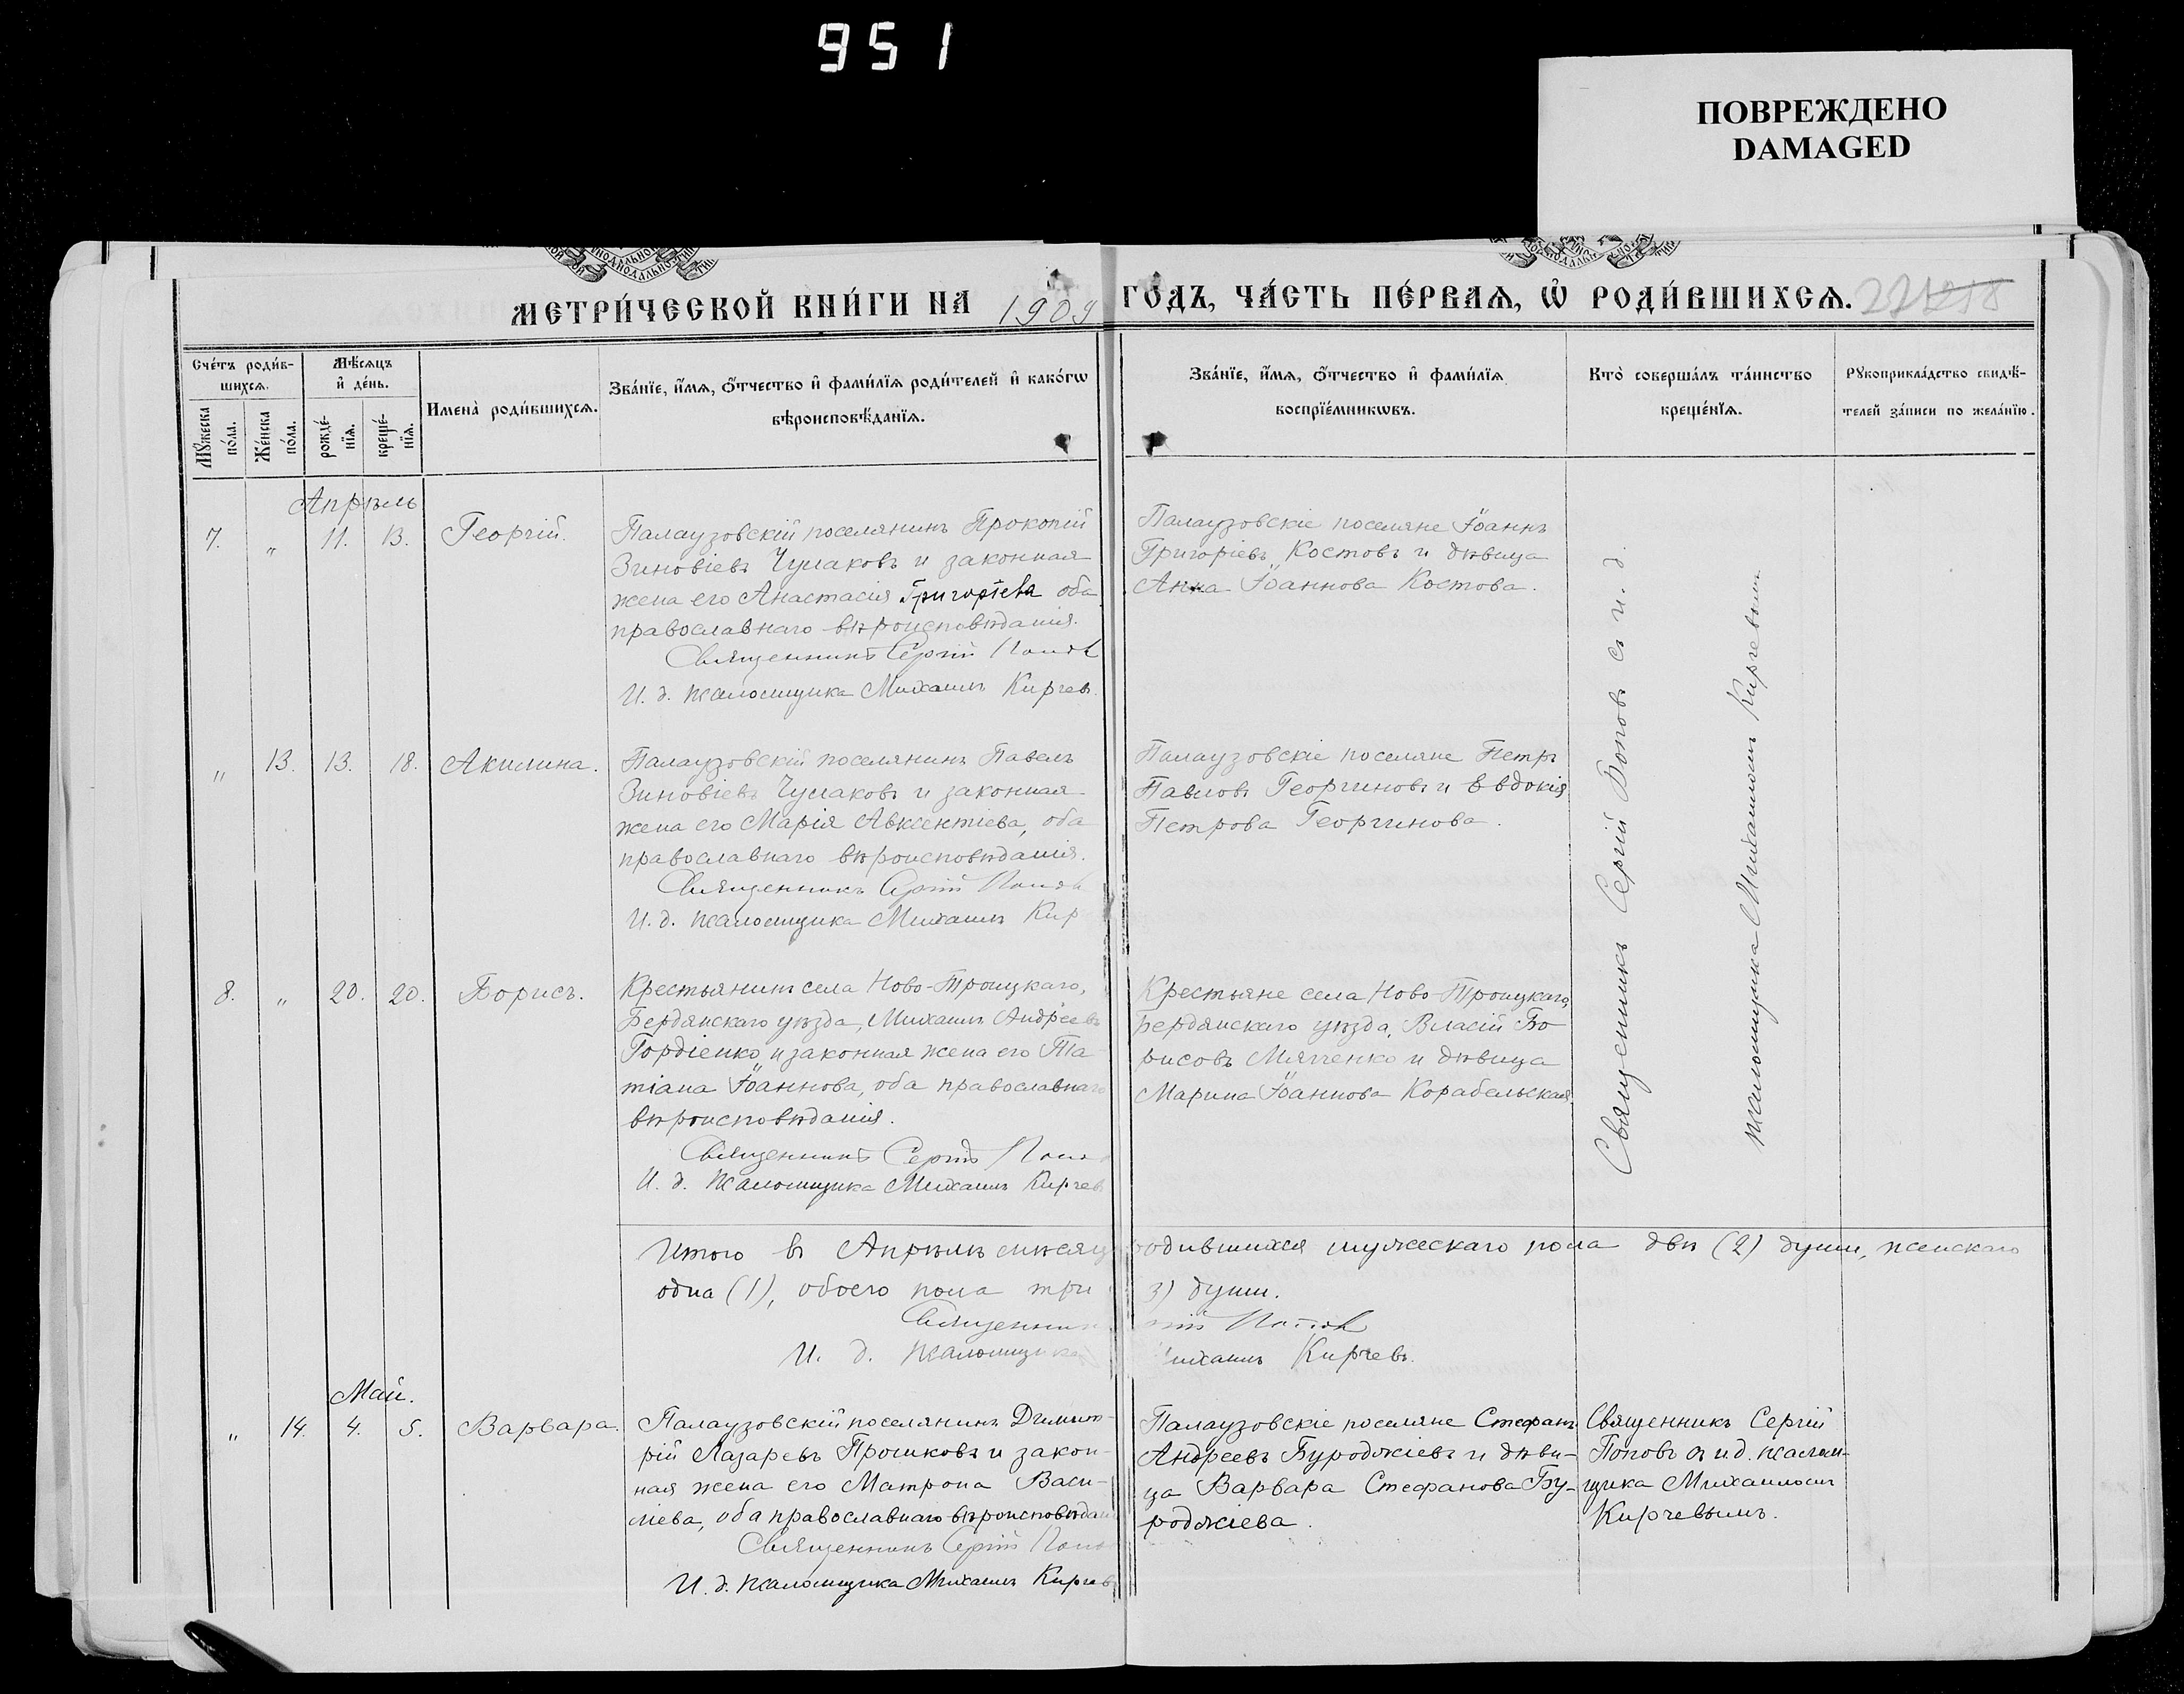 951
ПОВРЕЖДЕНО
DAMAGED
МЕТРИ́ЧЕСКОЙ КНИ́ГИ НА 1909 ГО́ДЪ, ЧА́СТЬ ПЕ́РВАѦ, Ѿ РОДИ́ВШИХСѦ.
Сче́тъ роди́в-
шихсѧ.
Мѣ́сѧцъ
и҆ де́нь.
Имена̀ роди́вшихсѧ.
Зва́нїе, и҆́мѧ, ѻ҆́тчество и҆ фами́лїѧ роди́телей и҆ како́гѡ
вѣроисповѣ́данїѧ.
Зва́нїе, и҆́мѧ, ѻ҆́тчество и҆ фами́лїѧ
воспрїе́мникѡвъ.
Кто̀ соверша́лъ та́инство
креще́нїѧ.
Рꙋкоприкла́дство свидѣ́-
телей за́писи по жела́нїю.
Мꙋ́жеска
по́ла.
Же́нска
по́ла.
рожде́-
нїѧ.
креще́-
нїѧ.
Апрѣль
7. „ 11. 13. Георгій.
Палаузовскій поселянинъ Прокопій
Зиновіевъ Чумаковъ и законная
жена его Анастасія Григорiева оба
православнаго вѣроисповѣданія.
Священникъ Сергій Поповъ
И. д. псаломщика Михаилъ Кирчев
Палаузовскіе поселяне Іоаннъ
Григоріевъ Костовъ и дѣвица
Анна Іоаннова Костова.
Священникъ Сергій Поповъ съ и. д.
псаломщика Михаиломъ Кирчевымъ
„ 13. 13. 18. Акилина.
Палаузовскій поселянинъ Павелъ
Зиновіевъ Чумаковъ и законная
жена его Марія Авксентіева, оба
православнаго вѣроисповѣданія.
Священникъ Сергій Попов
И. д. псаломщика Михаилъ Кир
Палаузовскіе поселяне Петръ
Павловъ Георгиновъ и Евдокія
Петрова Георгинова.
8. „ 20. 20. Борисъ.
Крестьянинъ села Ново-Троицкаго,
Бердянскаго уѣзда, Михаилъ Андреевъ
Гордіенко, и законная жена его Та
тіана Іоаннова, оба православнаго
вѣроисповѣданія.
Священникъ Сергій Попо
И. д. псаломщика Михаилъ Кирчев
Крестьяне села Ново-Троицкаго,
Бердянскаго уѣзда, Власій Бо
рисовъ Мягченко и дѣвица
Марина Іоаннова Корабельская.
Итого въ Апрѣлѣ мѣсяц родившихся мужескаго пола двѣ (2) души, женскаго
одна (1), обоего пола три 3) души.
Священник гій Поповъ
И. д. псаломщика ихаилъ Кирчевъ.
Май.
„ 14. 4. 5. Варвара.
Палаузовскій поселянинъ Димит-
рій Лазаревъ Прошковъ и закон-
ная жена его Матрона Васи-
ліева, оба православнаго вѣроисповѣдан
Священникъ Сергій Попо
И. д. псаломщика Михаилъ Кирчев
Палаузовскіе поселяне Стефанъ
Андреевъ Буроджіевъ и дѣви-
ца Варвара Стефанова Бу-
роджіева.
Священникъ Сергій
Поповъ съ и. д. псалом-
щика Михаиломъ
Кирчевымъ.